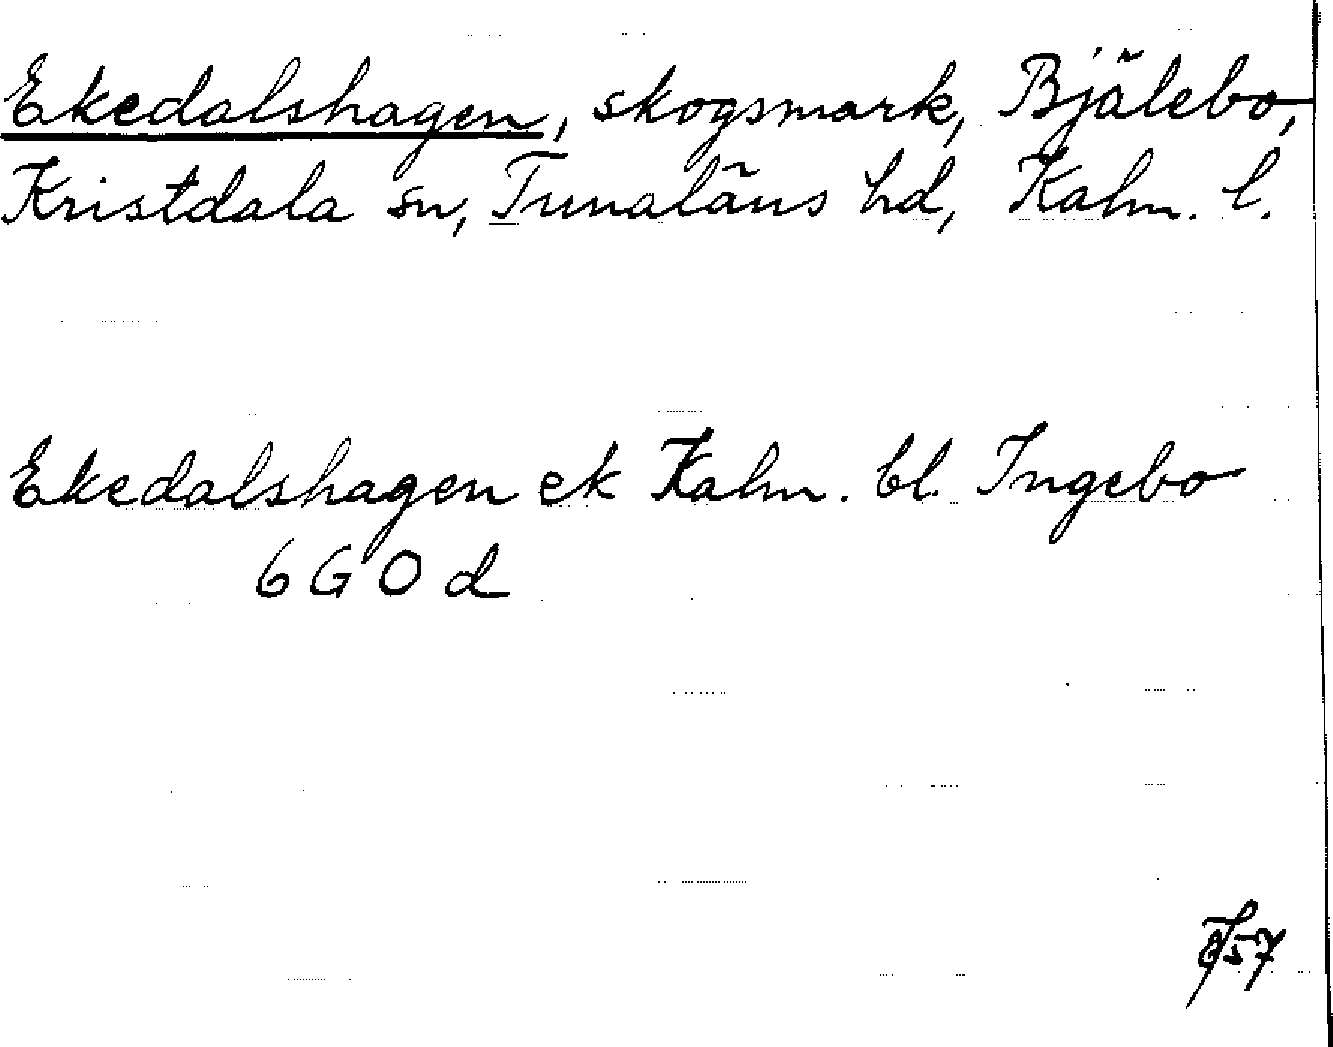 Ekedalshagen, skogsmark, Bjälebo,
Kristdala sn, Tunaläns hd, Kalm. l.
Ekedalshagen ek Kalm. bl. Ingebo
6 G O d